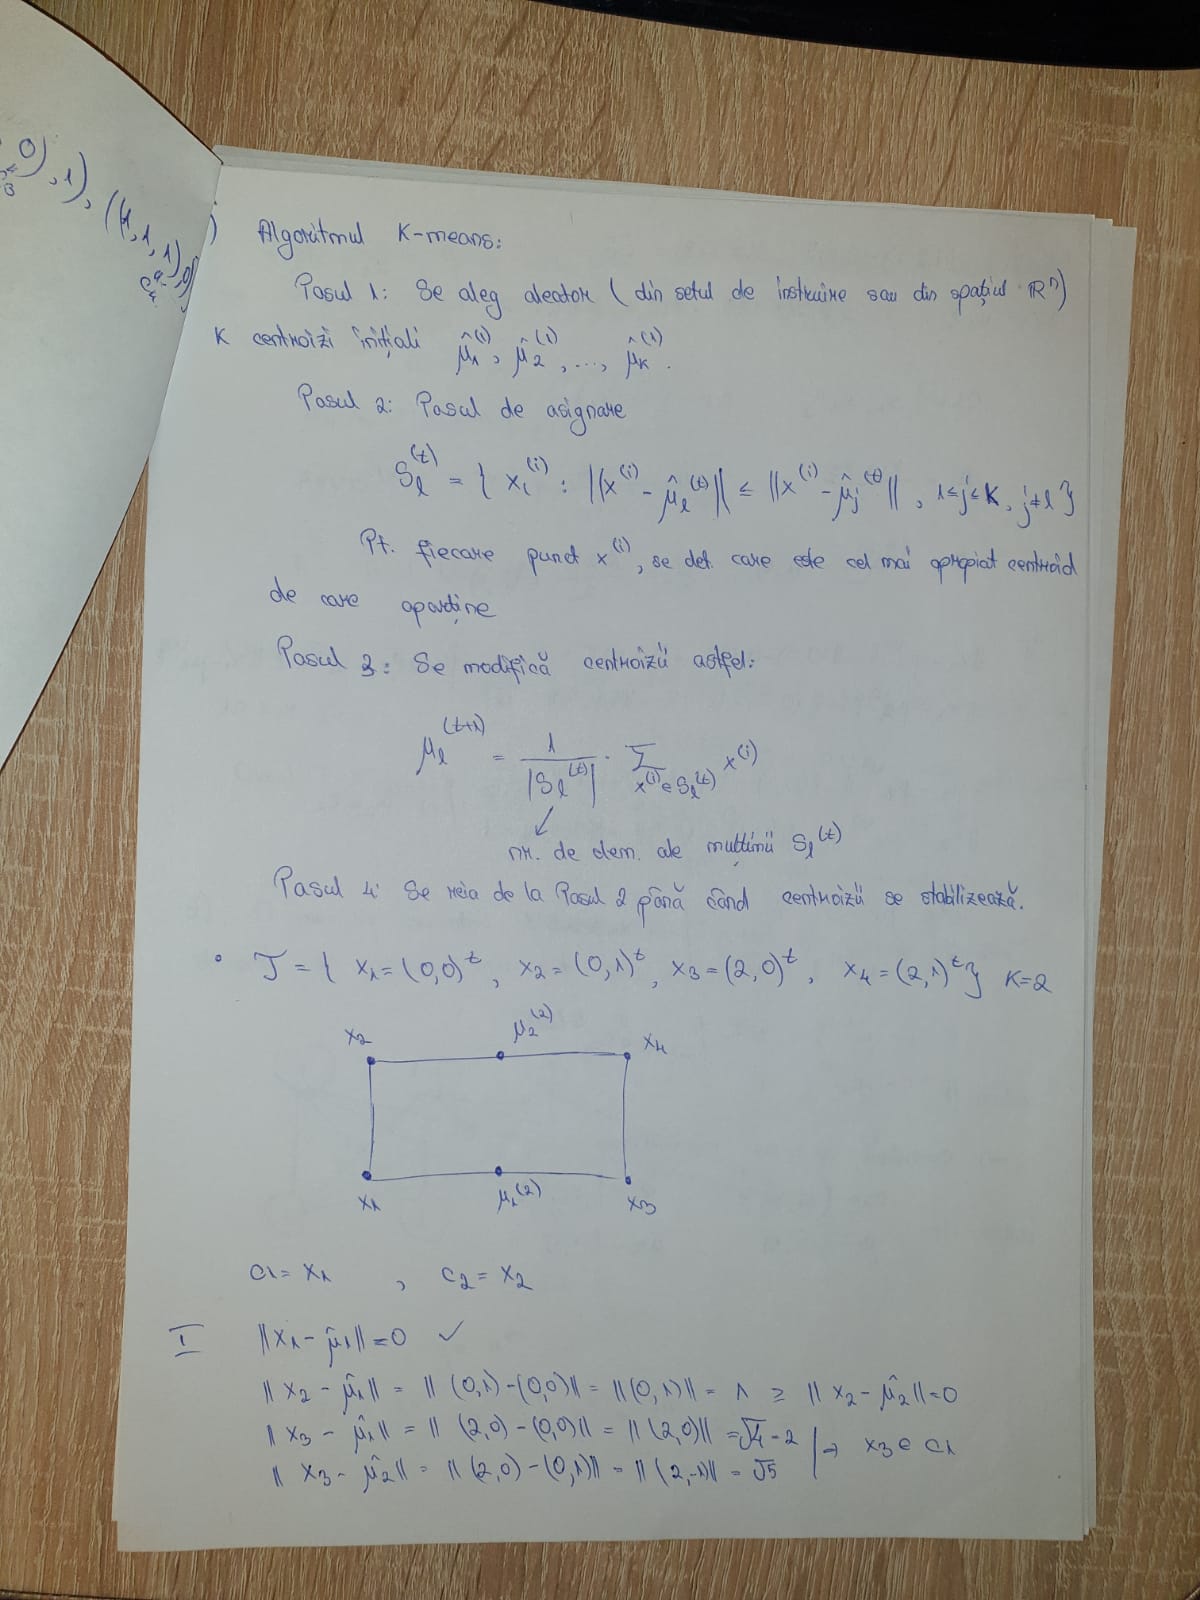 0), 1), (1, 1, 1)
Algoritmul K-means:
Pasul 1: Se aleg aleator ( din setul de instruire sau din spațiul ℝⁿ)
K centroizi inițiali μ̂₁⁽¹⁾, μ̂₂⁽¹⁾, ..., μ̂ₖ⁽¹⁾.
Pasul 2: Pasul de asignare
Sₗ⁽ᵗ⁾ = { xᵢ⁽ⁱ⁾ : ||x⁽ⁱ⁾ - μ̂ₗ⁽ᵗ⁾|| ≤ ||x⁽ⁱ⁾ - μ̂ⱼ⁽ᵗ⁾|| , 1≤j≤K, j≠l }
Pt. fiecare punct x⁽ⁱ⁾, se det. care este cel mai apropiat centroid
de care aparține
Pasul 3: Se modifică centroizii astfel:
μₗ⁽ᵗ⁺¹⁾ = 1/|Sₗ⁽ᵗ⁾| · Σ x⁽ⁱ⁾∈Sₗ⁽ᵗ⁾ x⁽ⁱ⁾
↙
nr. de elem. ale mulțimii Sₗ⁽ᵗ⁾
Pasul 4: Se reia de la Pasul 2 până când centroizii se stabilizează.
• T = { x₁ = (0,0)ᵗ, x₂ = (0,1)ᵗ, x₃ = (2,0)ᵗ, x₄ = (2,1)ᵗ } K=2
x₂ μ₂⁽²⁾ x₄
x₁ μ₁⁽²⁾ x₃
c₁ = x₁ , c₂ = x₂
I ||x₁ - μ̂₁|| = 0 ✓
|| x₂ - μ̂₁|| = || (0,1)-(0,0)|| = ||(0,1)|| = 1 ≥ || x₂ - μ̂₂|| = 0
|| x₃ - μ̂₁|| = || (2,0) - (0,0)|| = || (2,0)|| = √4 = 2
|| x₃ - μ̂₂|| = || (2,0) - (0,1)|| = || (2,-1)|| = √5 | ⇒ x₃ ∈ c₁